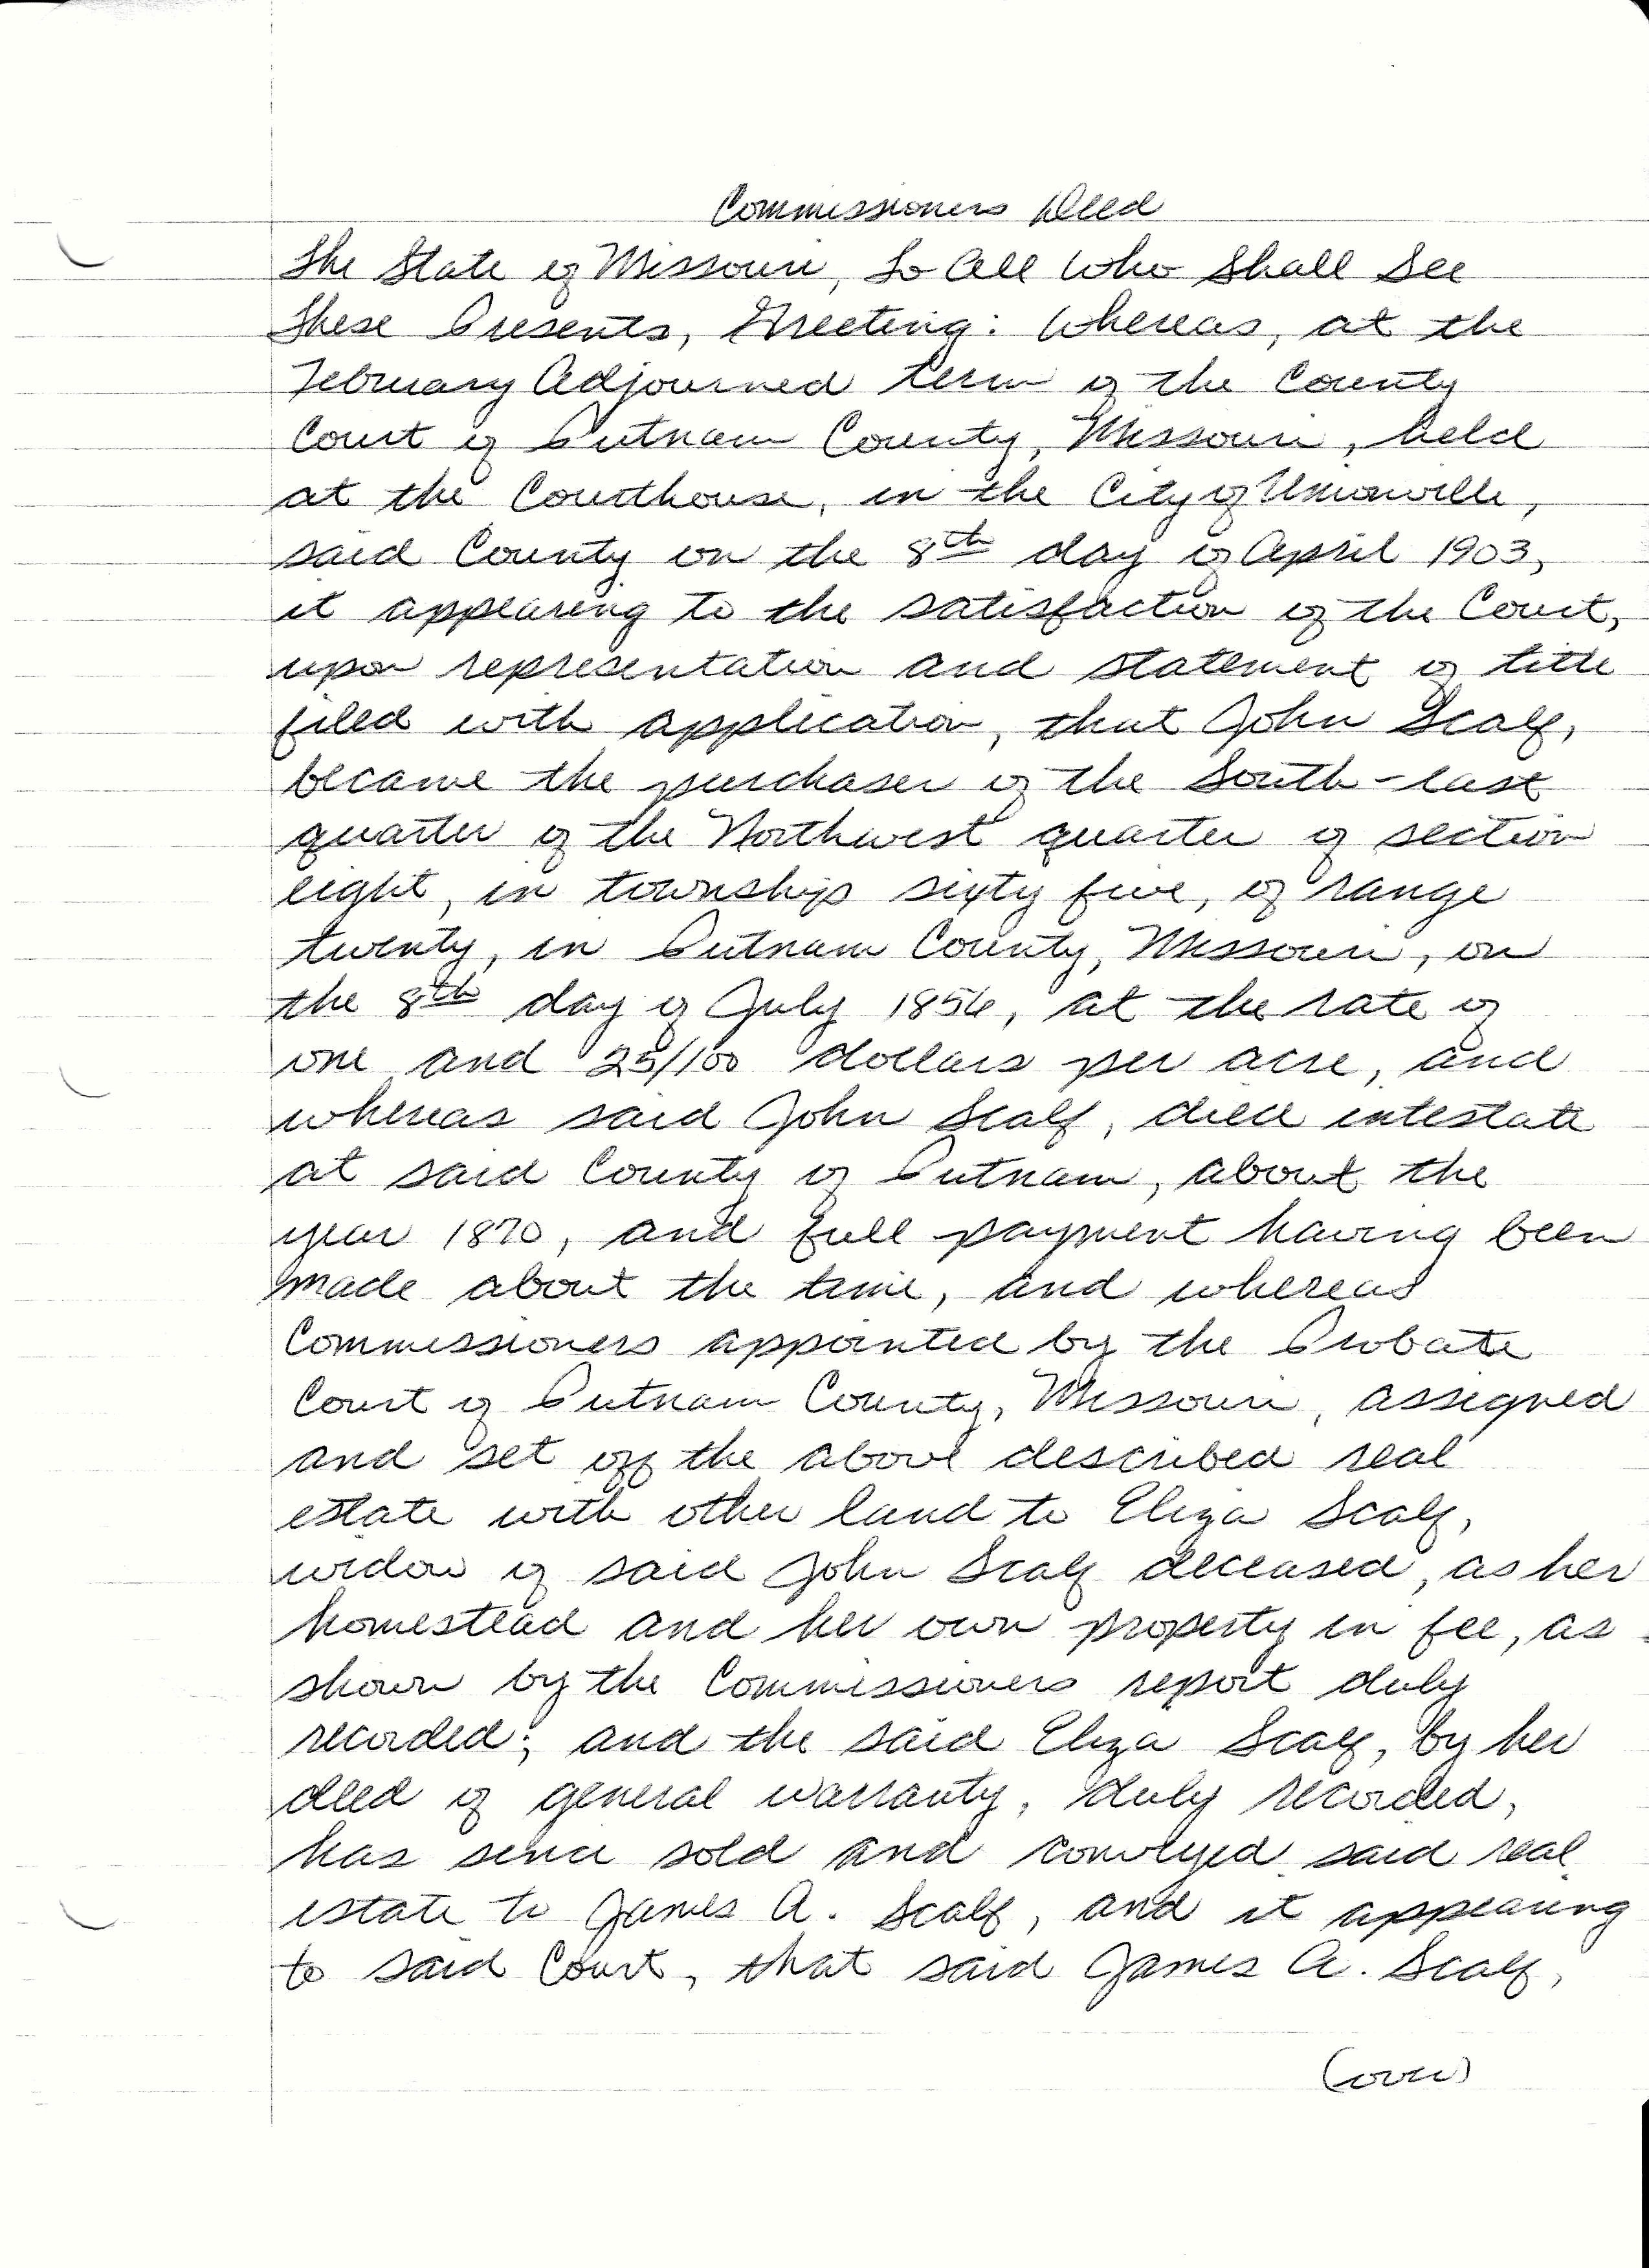 Commissioners Deed
The State of Missouri, To All Who Shall See
These Presents, Greeting: Whereas, at the
February Adjourned term of the County
Court of Putnam County, Missouri, held
at the Courthouse, in the City of Unionville,
said County on the 8th day of April 1903,
it appearing to the satisfaction of the Court,
upon representation and statement of title
filed with application, that John Scalf,
became the purchaser of the South-east
quarter of the Northwest quarter of section
eight, in township sixty five, of range
twenty, in Putnam County, Missouri, on
the 8th day of July 1856, at the rate of
one and 25/100 dollars per acre, and
whereas said John Scalf, died intestate
at said County of Putnam, about the
year 1870, and full payment having been
made about the time, and whereas
Commissioners appointed by the Probate
Court of Putnam County, Missouri, assigned
and set off the above described real
estate with other land to Eliza Scalf,
widow of said John Scalf deceased, as her
homestead and her own property in fee, as
shown by the Commissioners report duly
recorded; and the said Eliza Scalf, by her
deed of general warranty, duly recorded,
has since sold and conveyed said real
estate to James A. Scalf, and it appearing
to said Court, that said James A. Scalf,
(over)